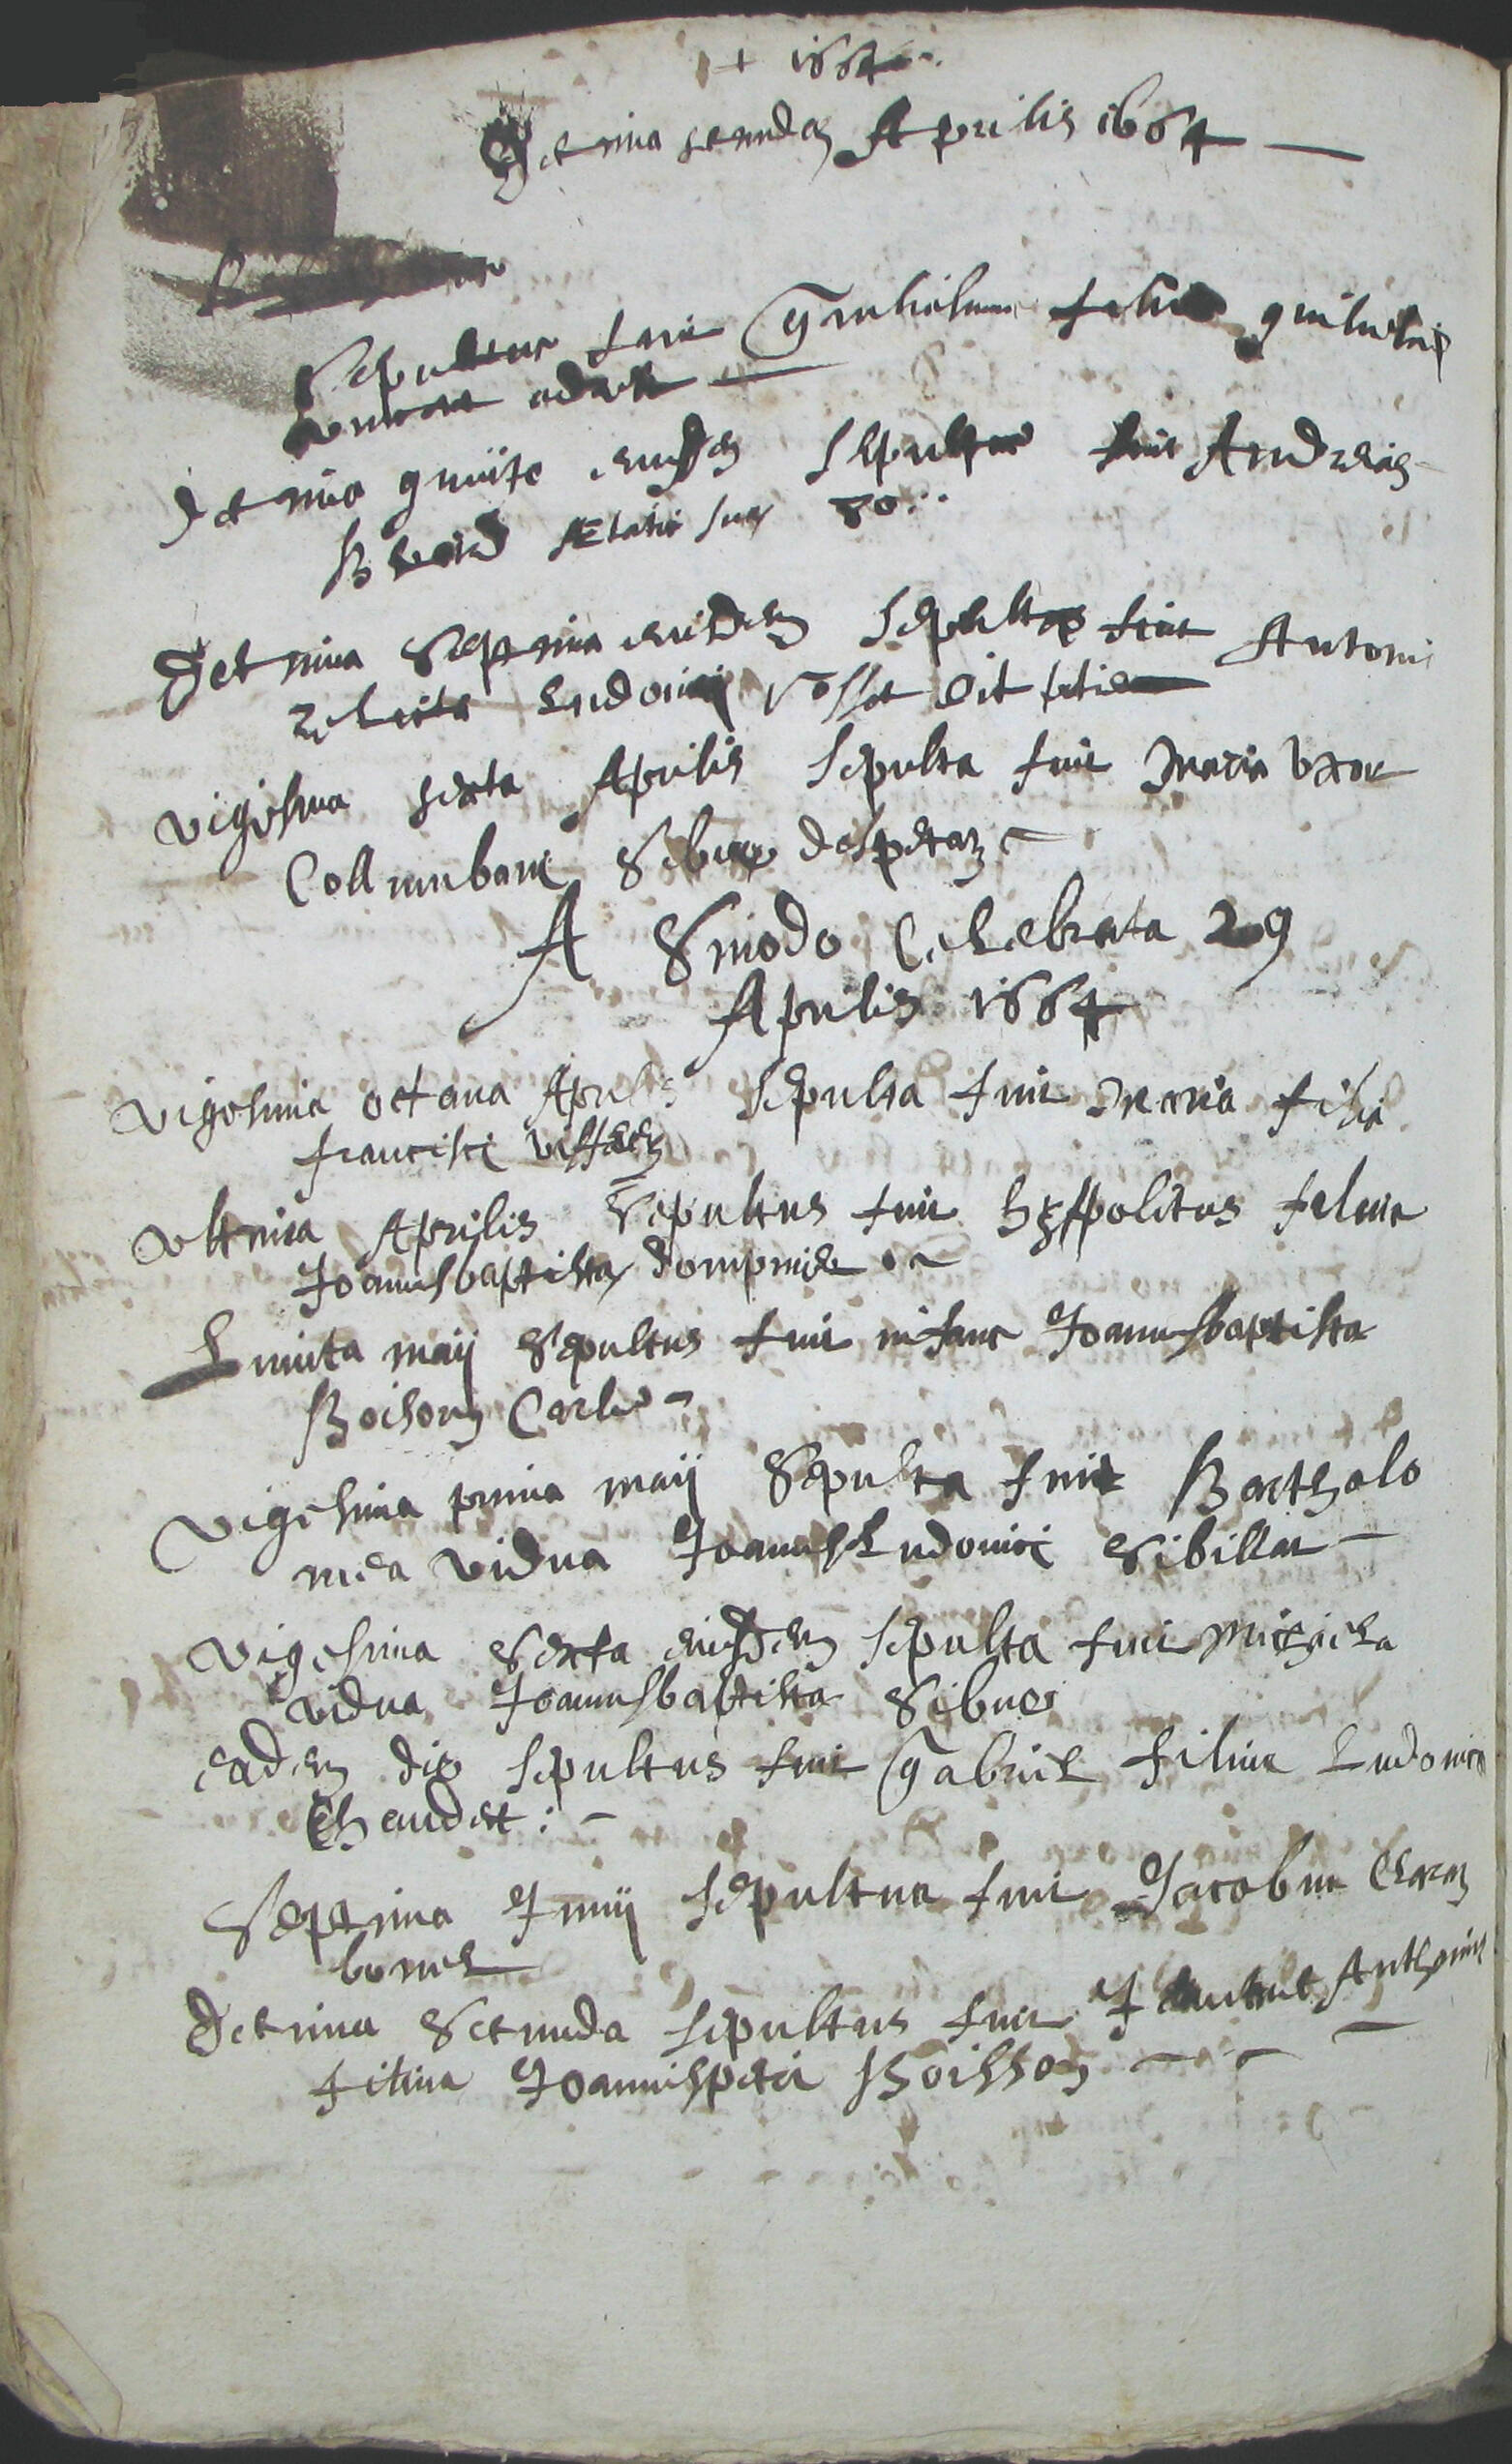 + 1664
Decima secunda Aprilis 1664
Sepultus fuit filius
Decima quinta eiusdem sepultus fuit Andreas
ætatis suæ 80
Decima septima eiusdem sepulta fuit Antonia
relicta Ludovici Rosset
Vigesima sexta Aprilis sepulta fuit Maria uxor
Collumbani Sibue
A Sinodo Celebrata 29
Aprilis 1664
Vigesima octava Aprilis sepulta fuit Maria filia
francisci
Ultima Aprilis Sepultus fuit hyppolitus filius
Joannisbaptistæ
Quinta maij Sepultus fuit infans Joannisbaptista
Boison Carlu
Vigesima prima maij Sepulta fuit Bartholo
mea vidua JoannisLudovici Sibillat
Vigesima Sexta eiusdem sepulta fuit Michaela
vidua Joannisbaptista Sibuet
eadem die sepultus fuit Gabriel filius Ludovici
Chaudet
Septima Junij sepultus fuit Jacobus
bonel
Decima Secunda sepultus fuit Anthonius
filius Joannispetri Boisson